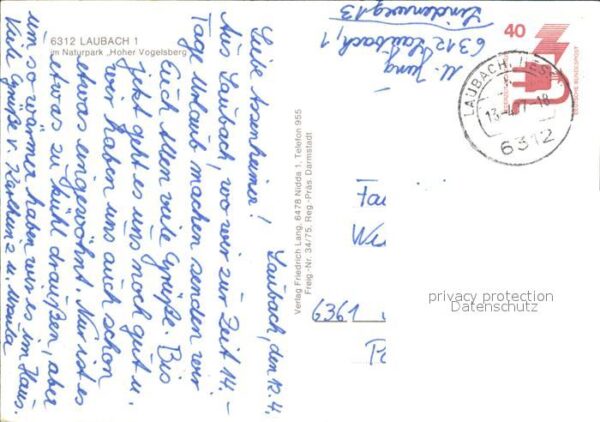 6312 LAUBACH 1
im Naturpark „Hoher Vogelsberg
Laubach, den 12.4.
Liebe Assenheimer!
Aus Laubach, wo wir zur Zeit 14.-
Tage Urlaub machen senden wir
Euch Allen viele Grüße. Bis
jetzt geht es uns noch gut u.
wir haben uns auch schon
etwas eingewöhnt. Nur ist es
etwas zu kühl draußen, aber
um so wärmer haben wir es im Haus.
Viele Grüße v. Karlheinz u. Ursula
Verlag Friedrich Lang, 6478 Nidda 1, Telefon 955
Freig.-Nr. 34/75, Reg.-Präs. Darmstadt
Jung
6312 Laubach, 1
Lindenweg 13
40
DEUTSCHE BUNDESPOST
LAUBACH
6312
Fa
6361
privacy protection
Datenschutz